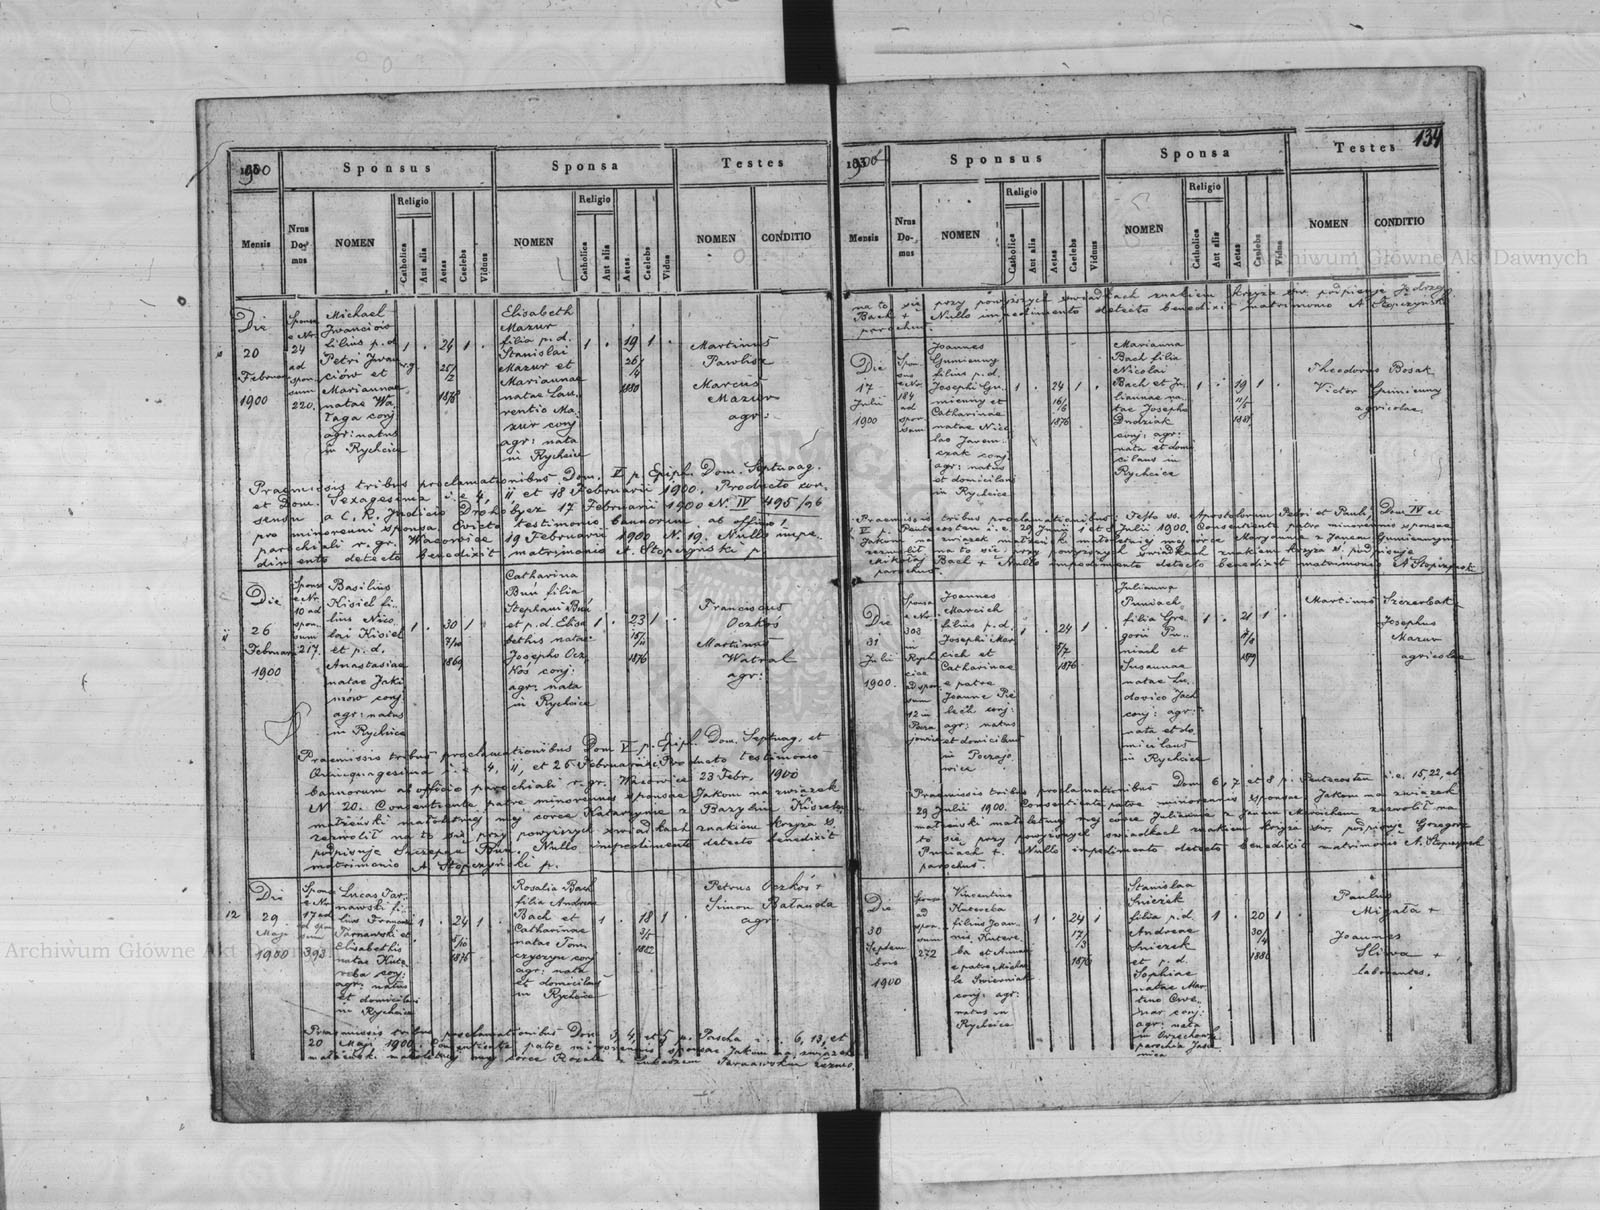 1900
Sponsus
Sponsa
Testes
Mensis
Nrus Domus
NOMEN
Religio
Catholica
Aut alia
Aetas
Caelebs
Viduus
NOMEN
Religio
Catholica
Aut alia
Aetas
Caelebs
Vidua
NOMEN
CONDITIO
Die
20
Februar
1900
Sponsa
e Nr.
24
ad
spon
sum
220.
Michael
Iwanciów
filius p. d.
Petri Iwan
ciów et
Mariannae
natae Wa
conj
agr: natus
in Rychcice
1
24
25/2
1876
1
Elisabeth
Mazur
filia p. d.
Stanislai
Mazur et
Mariannae
natae Lau
rentio Ma
zur conj
agr: nata
in Rychcice
1
19
26/4
1880
1
Martinus
Pawlisz
Marcus
Mazur
agr:
Praemissis tribus proclamationibus Dom. V p. Epiph. Dom. Septuag.
et Dom. Sexagesima i. e 4, 11 et 18 Februarii 1900. Producto con-
sensu a C. R. Judicio Drohobycz 17 Februarii 1900 N. IV 495/
pro minorenni sponsa Evicto testimonio bannorum ab officio
parochiali r. gr. Wacowice 19 Februarii 1900 N. 19. Nullo impe-
dimento detecto benedixit matrimonio A. Stopczyński p.
11
Die
26
Februar
1900
Sponsa
e Nr.
10 ad
spon
sum
217.
Basilius
Kisiel fi-
lius Nico
lai Kisiel
et p. d.
Anastasiae
natae Jaki
mów conj
agr: natus
in Rychcice
1
30
1869
1
Catharina
Buń filia
Stephani Buń
et p. d. Elisa
bethis natae
Josepho Ocz
kós conj.
agr: nata
in Rychcice
1
23
15/11
1876
1
Franciscus
Oczkoś
Martinus
Watral
agr:
Praemissis tribus proclamationibus Dom V p. Epiph. Dom. Septuag. et
Quinquagesima i. e 4, 11, et 25 Februarii. Producto testimonio
bannorum ab officio parochiali r. gr. Wacowice 23 Febr. 1900
N 20. Consentiente patre minorennis sponsae Jakom na związek
matżeński małoletniej mej córce Katarzynie z Bazylim Kisielem
zezwolił na to się przy powyższych świadkach znakiem krzyża ś.
podpisuje Szczepan Buń. Nullo impedimento detecto benedixit
matrimonio A. Stopczyński p.
12
Die
29
Maji
1900
Sponsa
e Nr.
17 ad
spon
sum
393
Lucas Tar
nawski fi-
lius Francis
Tarnawski et
Elisabethis
natae Kute
reba conj:
agr: natus
et domicilans
in Rychcice
1
24
1875
1
Rosalia Bach
filia Andreae
Bach et
Catharinae
natae Tom
czyszyn conj
agr: nata
et domicilans
in Rychcice
1
18
3/5
1882
1
Petrus Oczkoś +
Simon Bałanda
agr:
Praemissis tribus proclamationibus Dom. 3, 4, et 5 p. Pascha i. e. 6, 13, et
20 Maji 1900. Consentiente patre minorennis sponsae Jakom na związek
małżeński małoletniej mej córce Rozalii z Łukaszem Tarnawskim
134
1900
Sponsus
Sponsa
Testes
Mensis
Nrus Domus
NOMEN
Religio
Catholica
Aut alia
Aetas
Caelebs
Viduus
NOMEN
Religio
Catholica
Aut alia
Aetas
Caelebs
Vidua
NOMEN
CONDITIO
na to się przy powyższych świadkach znakiem krzyża św. podpisuje Jędrzej
Bach + Nullo impedimento detecto benedixit matrimonio A Stopczyński
parochus.
Die
17
Julii
1900
Spon
sus
e Nr.
184
ad
spon
sam
Joannes
Gumienny
filius p. d.
Josephi Gu
mienny et
Catharinae
natae Nico
lao Jarem
czak conj
agr: natus
et domicilans
in Rychcice
1
24
16/6
1876
1
Marianna
Bach filia
Nicolai
Bach et Ju
liannae na
tae Josepho
Dudziak
conj: agr:
nata et domi
cilans in
Rychcice
1
19
11/5
1881
1
Theodorus Bosak
Victor Gumienny
agricolae
Praemissis tribus proclamationibus: Festo ss. Apostolorum Petri et Pauli, Dom IV et
V p. Pentecosten i. e. 29 Junii 1 et 8 Julii 1900. Consentiente patre minorennis sponsae
Jakom na związek małżeński małoletniej mej córce Maryannie z Janem Gumiennym
zezwolił na to się przy powyższych świadkach znakiem krzyża ś. podpisuje
Mikołaj Bach + Nullo impedimento detecto benedixit matrimonio A Stopczyński
parochus.
Die
31
Julii
1900.
Sponsa
e Nr.
303
in
Rych
cice
ad spon
sum
12 in
Pocza
jowice
Joannes
Marcich
filius p. d.
Josephi Mar
cich et
Catharinae
e patre
Joanne Pie
lech conj:
agr: natus
et domicilans
in Poczajo
wice
1
24
5/7
1876
1
Julianna
Puniach
filia Gre
gorii Pu-
niach et
Susannae
natae Lu
dovico Jach
conj: agr:
nata et do
micilans
in Rychcice
1
21
1879
1
Martinus Szczerbak
Josephus
Mazur
agricolae
Praemissis tribus proclamationibus Dom 6, 7 et 8 p. Pentecosten i. e. 15, 22, et
29 Julii 1900. Consentiente patre minorennis sponsae Jakom na związek
małżeński małoletniej mej córce Juliannie z Janem Marcichem zezwolił na
to się przy powyższych świadkach znakiem krzyża św. podpisuje Grzegorz
Puniach +. Nullo impedimento detecto benedixit matrimonio A. Stopczyński
parochus.
Die
30
Septem
bris
1900
Sponsa
ad
spon
sum
272
Vincentius
Kutereba
filius Joan-
nis Kutere
ba et Annae
e patre Micha
le Świerniak
conj: agr:
natus in
Rychcice
1
24
17/3
1876
1
Stanislaa
Śnieżek
filia p. d.
Andreae
Śnieżek
et p. d.
Sophiae
natae Mar
tino Cwe-
nar conj:
agr: nata
in Orzechowka
parochia Jasie
nica
1
20
30/4
1880
1
Paulus
Migała +
Joannes
Sliwa +
laborantes.
Archiwum Główne Akt Dawnych
Archiwum Główne Akt Dawnych